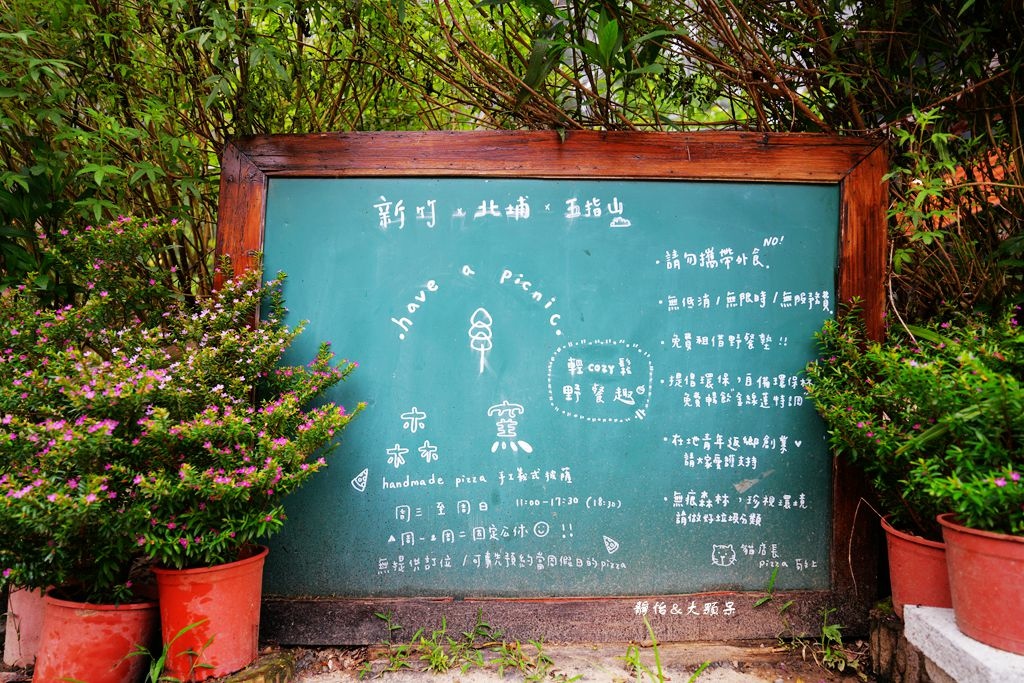 新竹 x 北埔 x 五指山
.have a picnic.
輕cozy鬆
野餐趣
森 窯
handmade pizza 手工義式披薩
周三至周日 11:00-17:30 (18:30)
▲周一、周二固定公休 !!
無提供訂位 / 可事先預約當周假日的pizza
·請勿攜帶外食. NO!
·無低消 / 無限時 / 無服務費.
·免費租借野餐墊 !!
·提倡環保,自備環保杯
免費暢飲"金線蓮特調"
·在地青年返鄉創業♥
請大家多多支持
·無痕森林,珍視環境
請做好垃圾分類
貓店長
pizza
靜怡&大顆呆